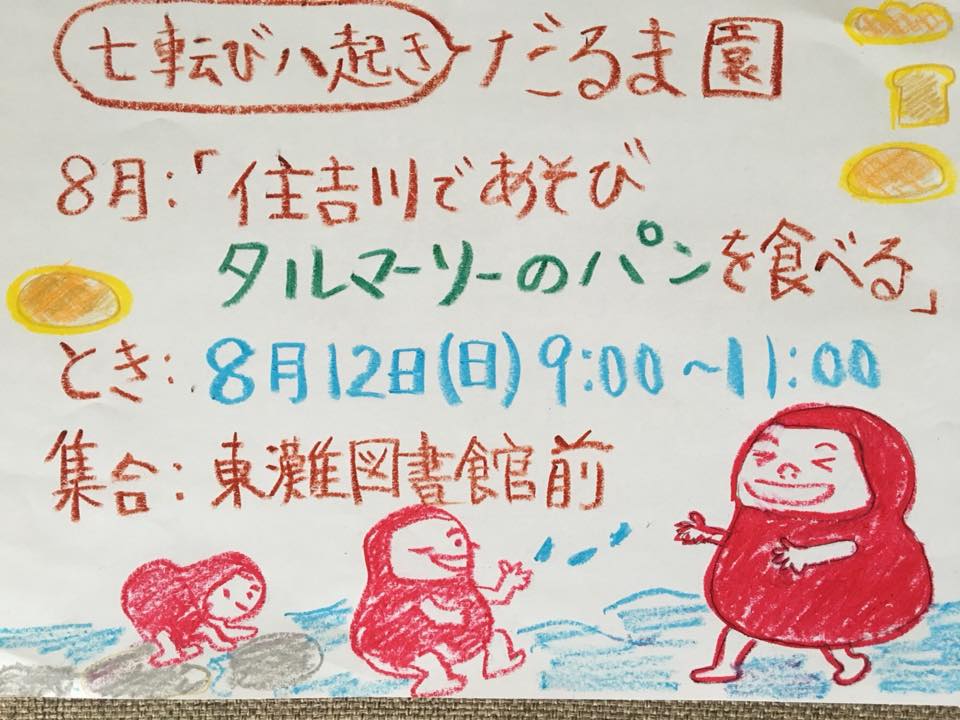 七転び八起き だるま園
8月:「住吉川であそび
タルマーリーのパンを食べる」
とき: 8月12日(日) 9:00~11:00
集合: 東灘図書館前